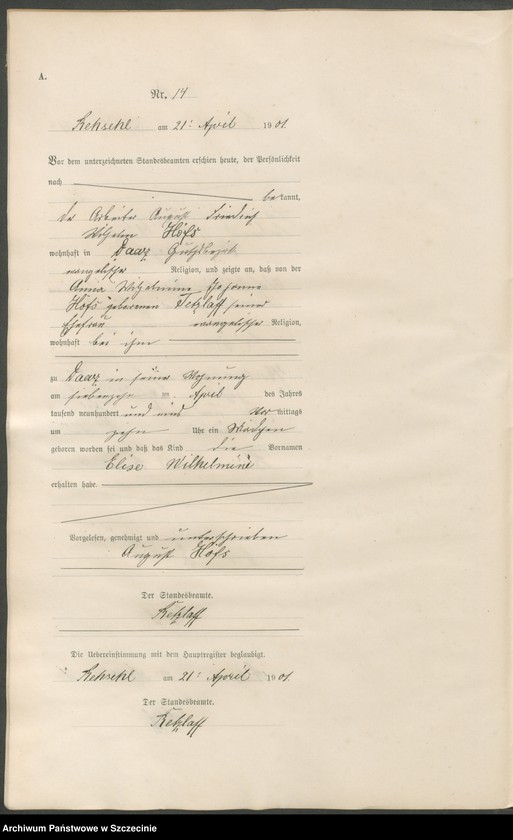 A.
Nr. 14
am 21. April 1901.
Vor dem unterzeichneten Standesbeamten erschien heute, der Persönlichkeit
nach
bekannt,
der Arbeiter August Friedrich
Wilhelm Höfs
wohnhaft in Daarz Gutsbezirk
evangelischer Religion, und zeigte an, daß von der
Anna Wilhelmine Johanne
Höfs geborenen Tetzlaff seiner
Ehefrau evangelischer Religion,
wohnhaft bei ihm
zu Daarz in seiner Wohnung
am siebenzehn ten April des Jahres
tausend neunhundert und eins Vor mittags
um zehn Uhr ein Mädchen
geboren worden sei und daß das Kind die Vornamen
Elise Wilhelmine
erhalten habe.
Vorgelesen, genehmigt und unterschrieben
August Höfs
Der Standesbeamte.
Ketzlaff
Die Uebereinstimmung mit dem Hauptregister beglaubigt.
am 21. April 1901.
Der Standesbeamte.
Ketzlaff
Archiwum Państwowe w Szczecinie